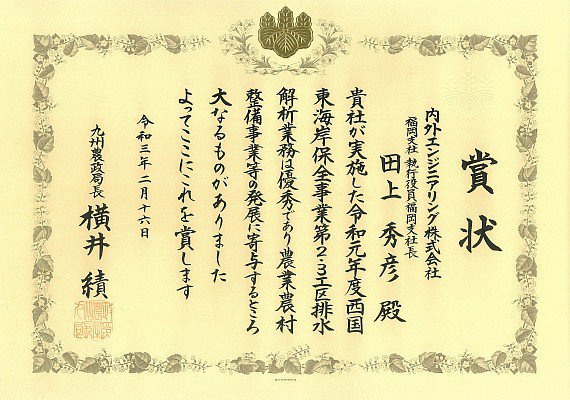 賞状
内外エンジニアリング株式会社
福岡支社 執行役員福岡支社長
田上 秀彦 殿
貴社が実施した令和元年度西国
東海岸保全事業第2・3工区排水
解析業務は優秀であり農業農村
整備事業等の発展に寄与するところ
大なるものがありました
よってここにこれを賞します
令和三年二月十六日
九州農政局長
横井 績